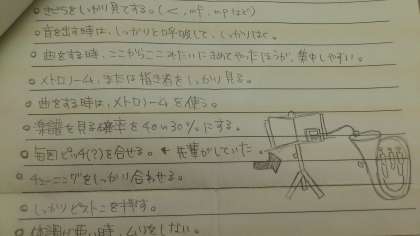 ○きごうをしっかり見てする。(<, mf, mpなど)
○音を出す時は、しっかりと呼吸して、しっかりはく。
○曲をする時、ここからここみたいにきめてやったほうが、集中しやすい。
○メトロノーム、または指き者をしっかり見る。
○曲をする時は、メトロノームを使う。
○楽譜を見る確率を40～30%にする。
○毎回ピッチ(?)を合せる。← 先輩がしていた。
○チューニングをしっかり合わせる。
○しっかりピストンを押す。
○体調が悪い時、ムリをしない。